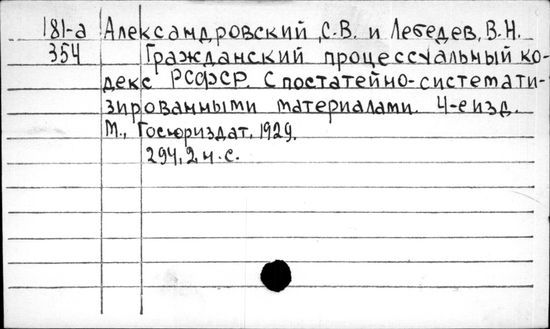 181-а Александровский, С.В. и Лебедев, В.Н.
354 Гражданский процессуальный ко-
декс РСФСР. С постатейно-системати-
зированными материалами. 4-е изд.
М., Госюриздат, 1929.
294, 2 н. с.